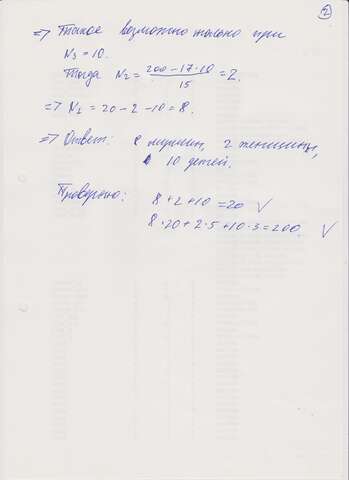 2
=> Такое возможно только при
N₃ = 10.
Тогда N₂ = (200 – 17·10)/15 = 2.
=> N₁ = 20 – 2 – 10 = 8.
=> Ответ: 8 мужчин, 2 женщины,
10 детей.
Проверяю: 8 + 2 + 10 = 20 √
8·20 + 2·5 + 10·3 = 200. √